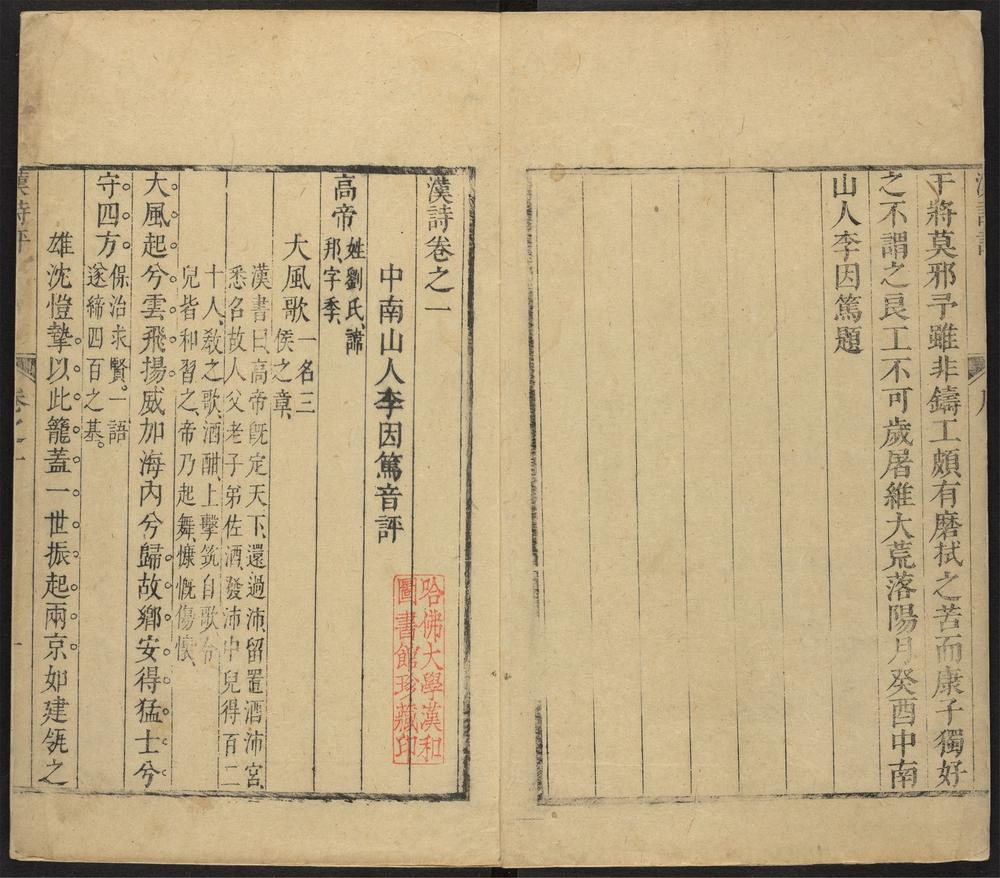 干將莫邪予雖非鑄工頗有磨拭之苦而康子獨好
之不謂之良工不可歲屠維大荒落陽月癸酉中南
山人李因篤題
漢詩卷之一
中南山人李因篤音評
哈佛大學漢和
圖書館珍藏印
高帝
姓劉氏諱
邦字季
大風歌
一名三
侯之章
漢書曰高帝旣定天下還過沛留置酒沛宮
悉名故人父老子弟佐酒發沛中兒得百二
十人敎之歌酒酣上擊筑自歌令
兒皆和習之帝乃起舞慷慨傷懷
大風起兮雲飛揚威加海內兮歸故鄉安得猛士兮
守四方
保治求賢一語
遂締四百之基
雄沈愷摯以此籠蓋一世振起兩京如建瓴之
漢詩評
卷之一
一